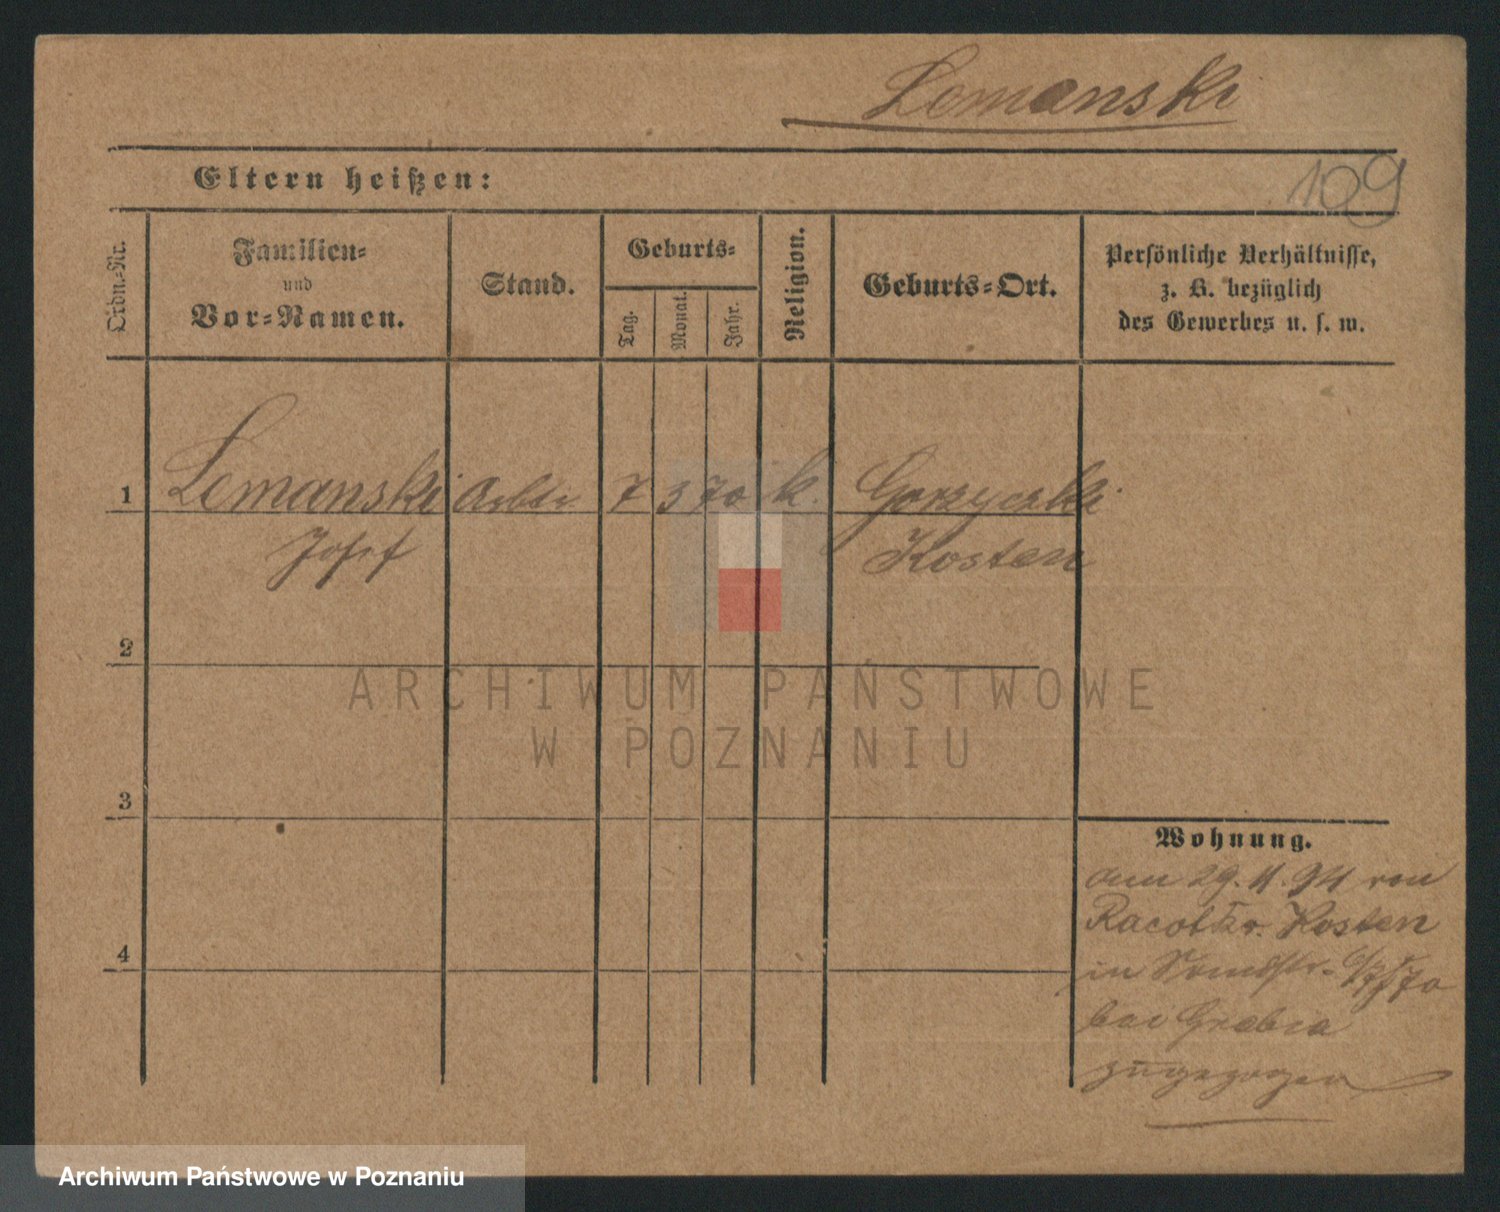 Lomanski
109
Eltern heißen:
Ordn.-Nr.
Familien-
und
Vor-Namen.
Stand.
Geburts-
Tag.
Monat.
Jahr.
Religion.
Geburts-Ort.
Persönliche Verhältnisse,
z. B. bezüglich
des Gewerbes u. s. w.
1 Lomanski Arbtr 7 3 70 k. Gorzyczki
Josef Kosten
2
3
4
Wohnung.
am 29.11.94 von
Racot Kr. Kosten
in
bei Grabia
zugezogen
ARCHIWUM PAŃSTWOWE
W POZNANIU
Archiwum Państwowe w Poznaniu